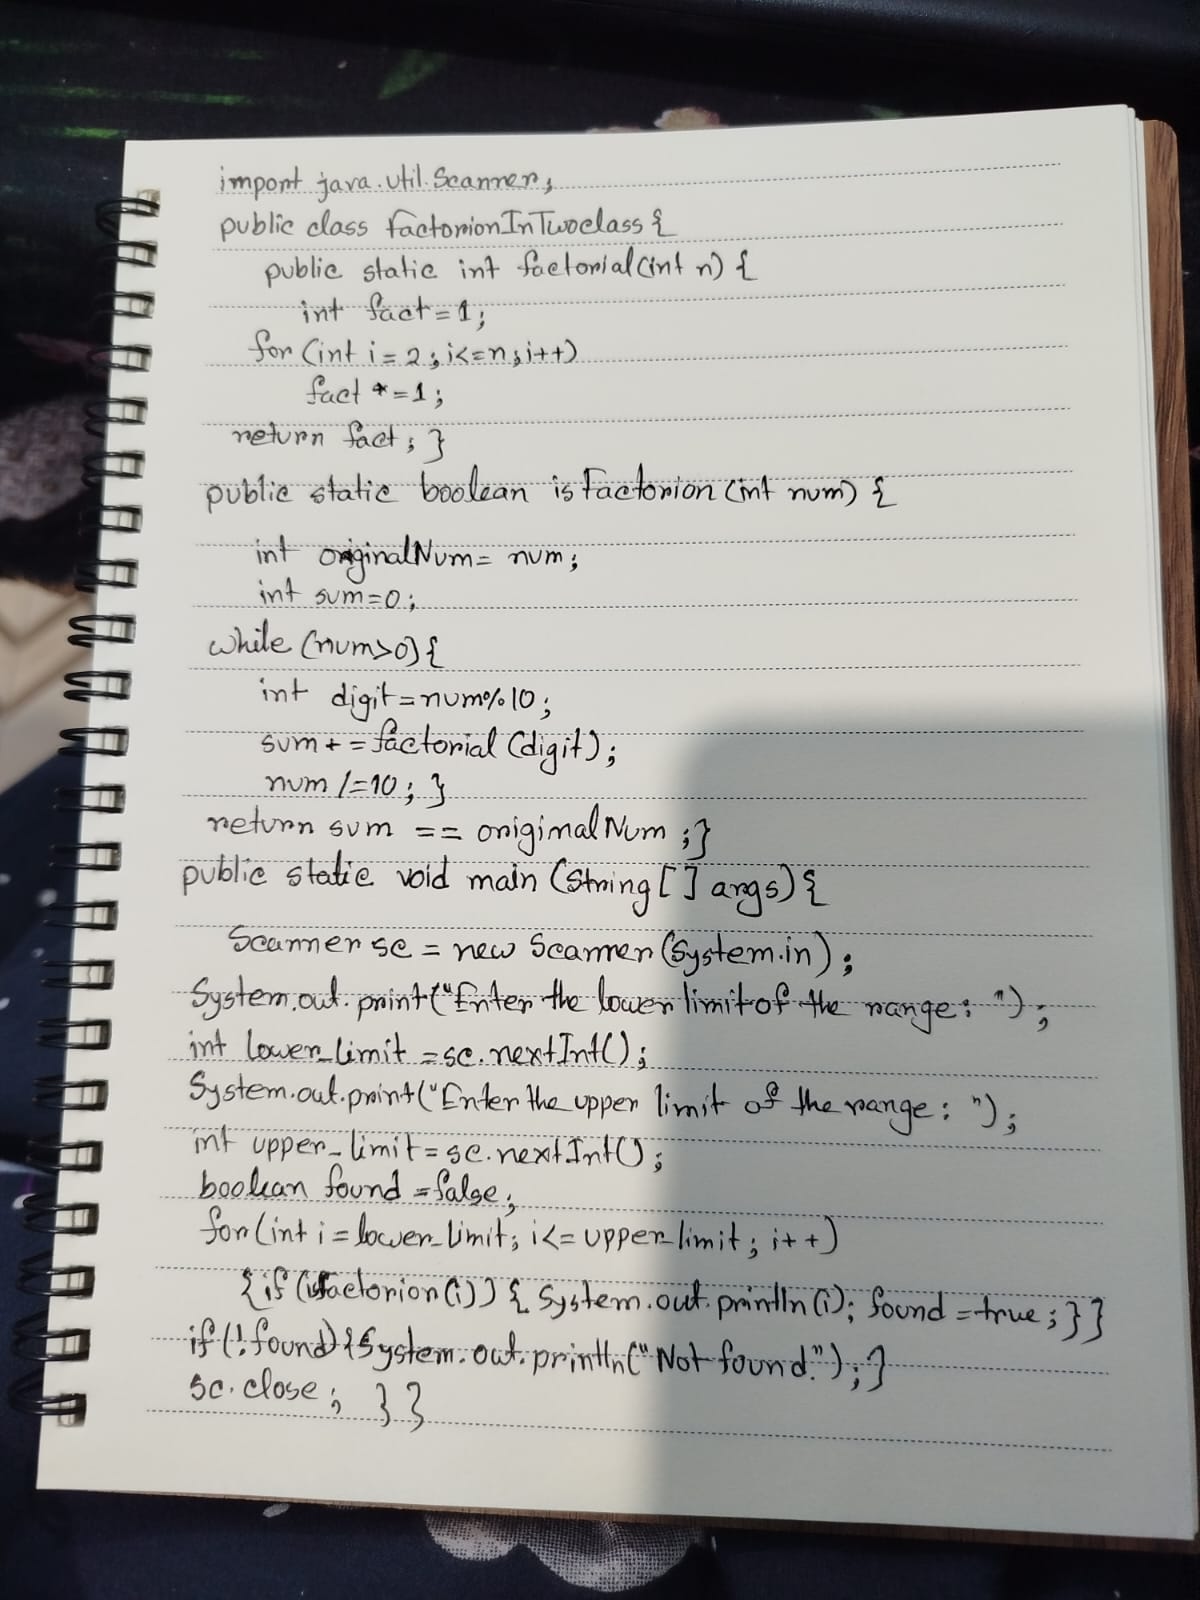 import java.util.Scanner;
public class FactorionInTwoclass {
public static int factorial(int n) {
int fact = 1;
for (int i = 2; i<=n; i++)
fact *= 1;
return fact; }
public static boolean isFactorion (int num) {
int originalNum = num;
int sum=0;
while (num>0) {
int digit = num%10;
sum + = factorial (digit);
num /= 10; }
return sum == originalNum ;}
public static void main (String [] args) {
Scanner sc = new Scanner (System.in);
System.out.print("Enter the lower limit of the range: ");
int lower_limit = sc.nextInt();
System.out.print("Enter the upper limit of the range: ");
int upper_limit = sc.nextInt();
boolean found = false;
for (int i = lower_limit; i<= upper_limit; i++)
{if (isfactorion(i)) { System.out.println(i); found = true; } }
if (!found) {System.out.println("Not found."); }
sc.close; } }